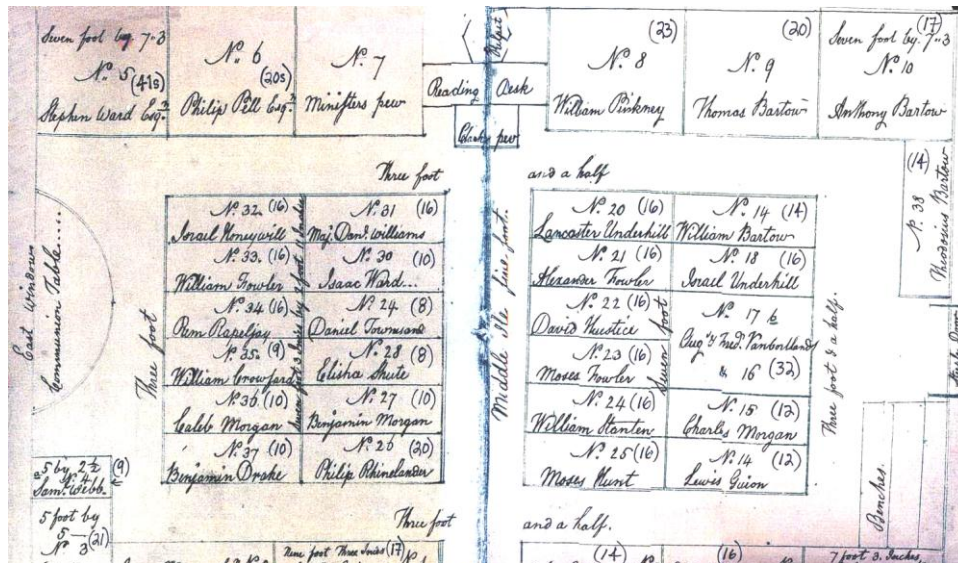 Seven foot by 7"3
Nº 5 (41s)
Stephen Ward Esqr
Nº 6
(20s)
Philip Pell Esqr
Nº 7
Ministers pew
Pulpit
Reading Desk
Clarks pew
(23)
Nº 8
William Pinkney
(20)
Nº 9
Thomas Bartow
(17)
Seven foot by 7"3
Nº 10
Anthony Bartow
(14)
Nº 38
Theodosius Bartow
Three foot and a half
East Window
Communion Table....
Three foot
Nº 32 (16)
Israel Honeywill
Nº 33 (16)
William Fowler
Nº 34 (16)
Rem Rapeljay
Nº 35 (9)
William Crowford
Nº 36 (10)
Caleb Morgan
Nº 37 (10)
Benjamin Drake
Nº 31 (16)
Maj. Danl. Williams
Nº 30 (10)
Isaac Ward...
Nº 24 (8)
Daniel Townsand
Nº 28 (8)
Elisha Shute
Nº 27 (10)
Benjamin Morgan
Nº 26 (20)
Philip Rhinelander
Middle isle five foot.
Nº 20 (16)
Lancaster Underhill
Nº 21 (16)
Alexander Fowler
Nº 22 (16)
David Huestice
Nº 23 (16)
Moses Fowler
Nº 24 (16)
William Stanten
Nº 25 (16)
Moses Hunt
Seven foot
Nº 14 (14)
William Bartow
Nº 18 (16)
Israel Underhill
Nº 17 &
Aug & Fred. Vancortland
& 16 (32)
Nº 15 (12)
Charles Morgan
Nº 14 (12)
Lewis Guion
Three foot & a half.
Benches.
5 by 2½ (9)
Nº 4
Saml. Webb.
5 foot by
5 — (21)
Nº 3
Three foot and a half.
Nine foot Three Inches (17)
(14)
(16)
7 foot 3. Inches,